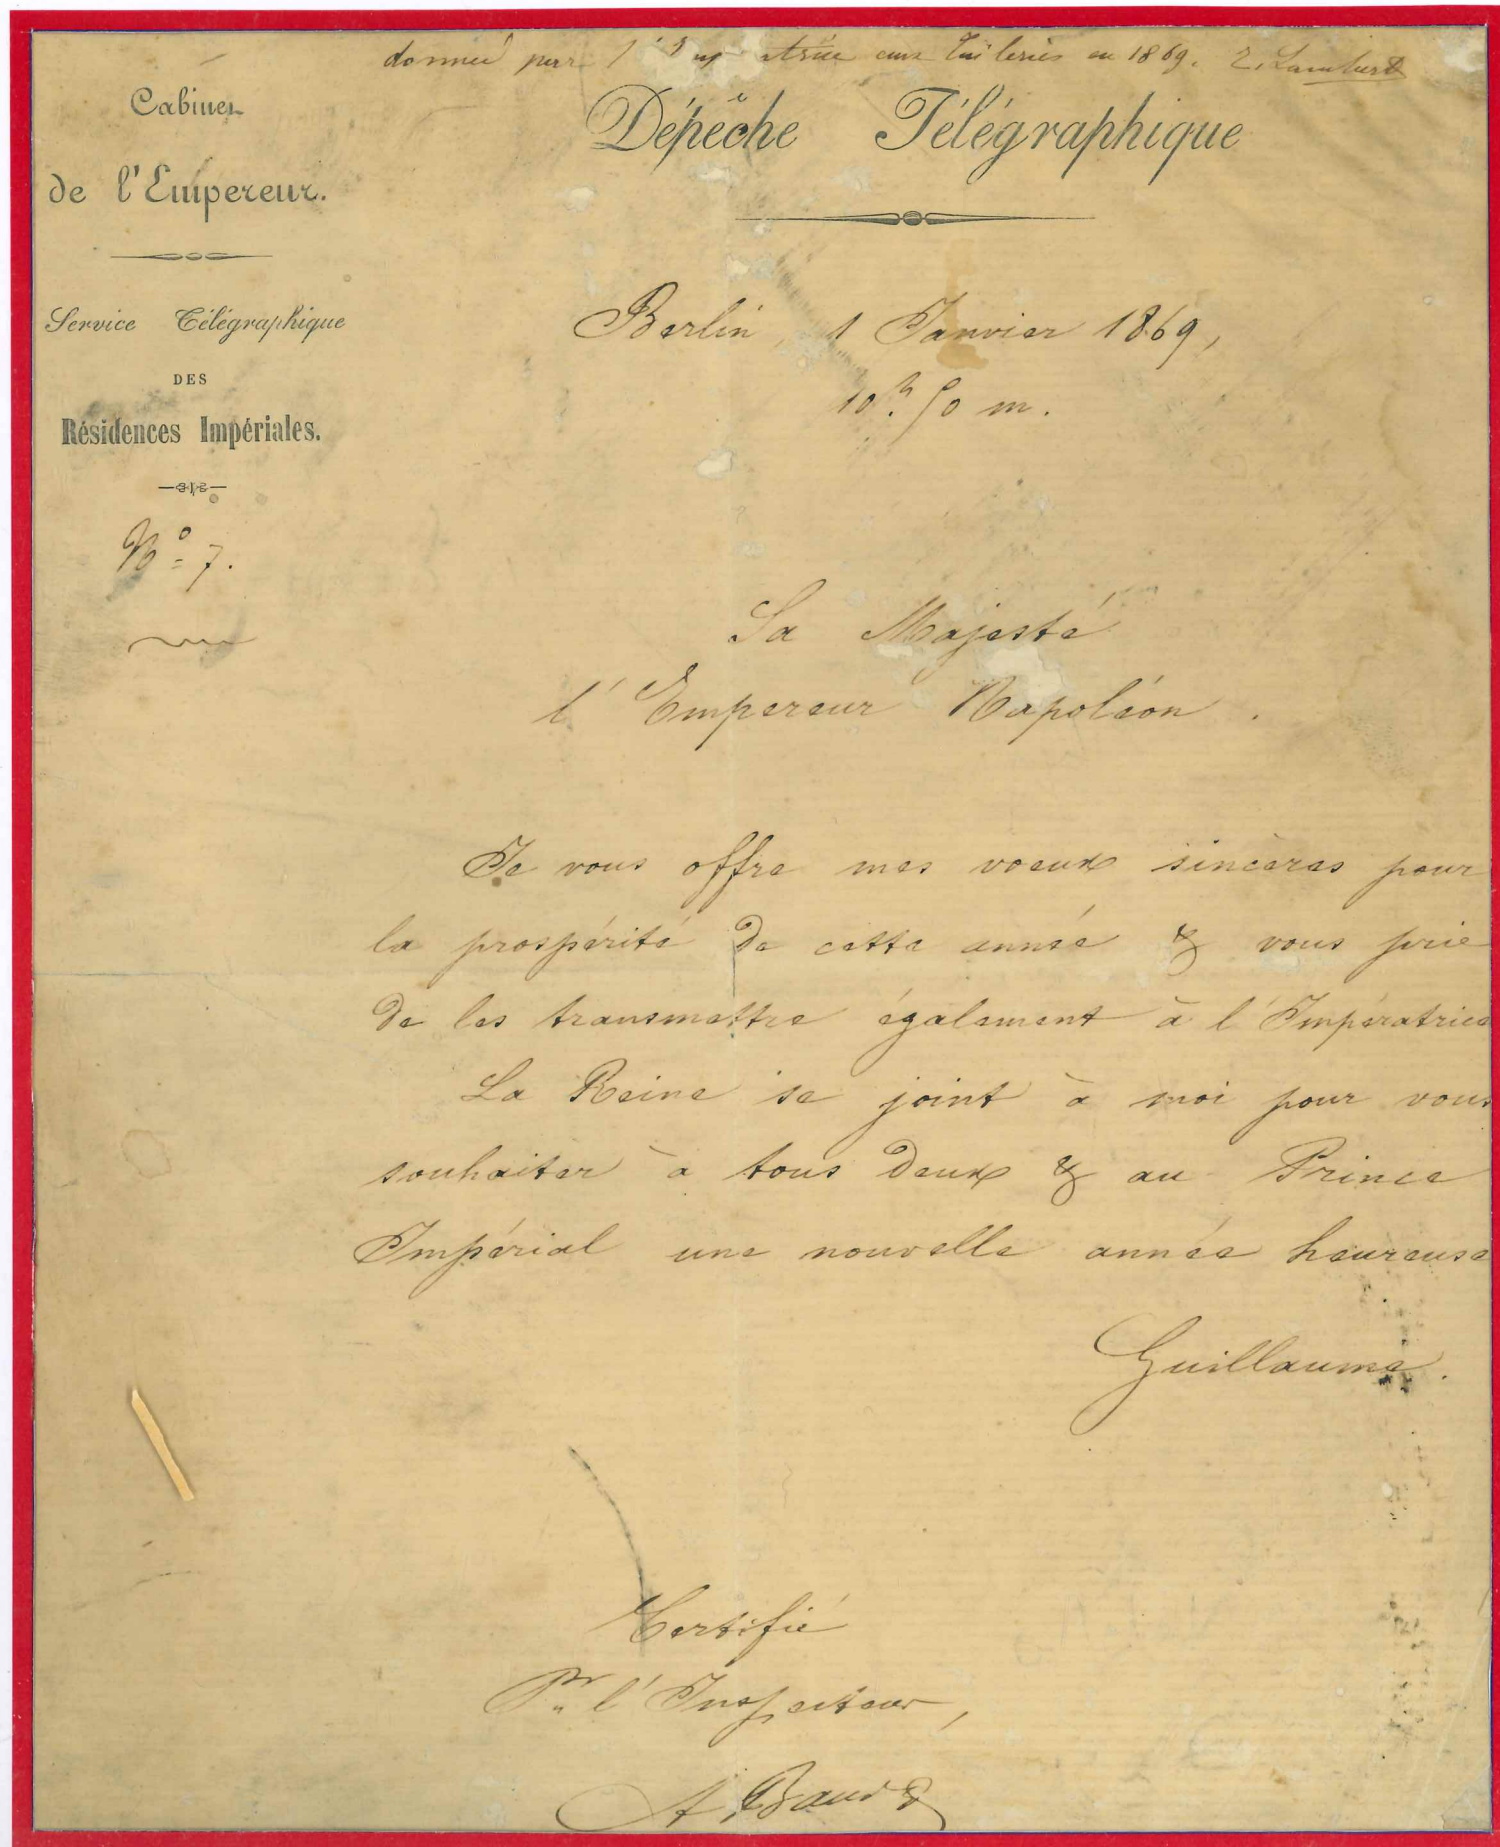 donnée par l'Impératrice aux Tuileries en 1869. E. Lambert
Cabinet
de l'Empereur.
Service Télégraphique
DES
Résidences Impériales.
Nº 7.
Dépêche Télégraphique
Berlin, 1 Janvier 1869,
10h. 50 m.
Sa Majesté
l'Empereur Napoléon.
Je vous offre mes voeux sincères pour
la prospérité de cette année & vous prie
de les transmettre également à l'Impératrice
La Reine se joint à moi pour vous
souhaiter à tous deux & au Prince
Impérial une nouvelle année heureuse
Guillaume.
Certifié
Pr l'Inspecteur,